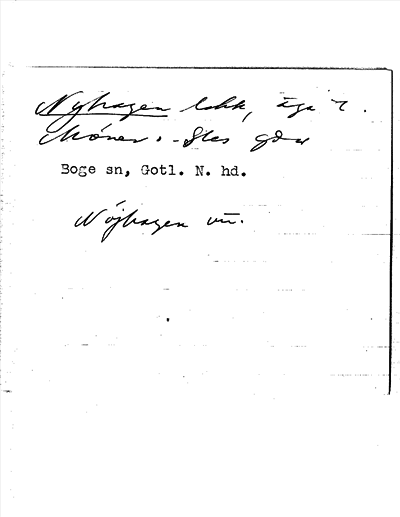 Nyhagen lokk, äga t.
Mòner o. Sles gdar
Boge sn, Gotl. N. hd.
Nöjhagen un.